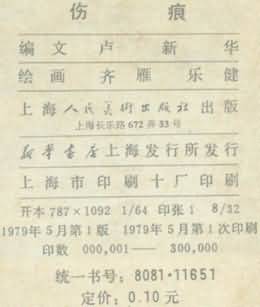 伤痕
编文 卢新华
绘画 齐雁 乐健
上海人民美术出版社出版
上海长乐路672弄33号
新华书店上海发行所发行
上海市印刷十厂印刷
开本787×1092 1/64 印张1 8/32
1979年5月第1版 1979年5月第1次印刷
印数 000,001—— 300,000
统一书号：8081·11651
定价：0.10元